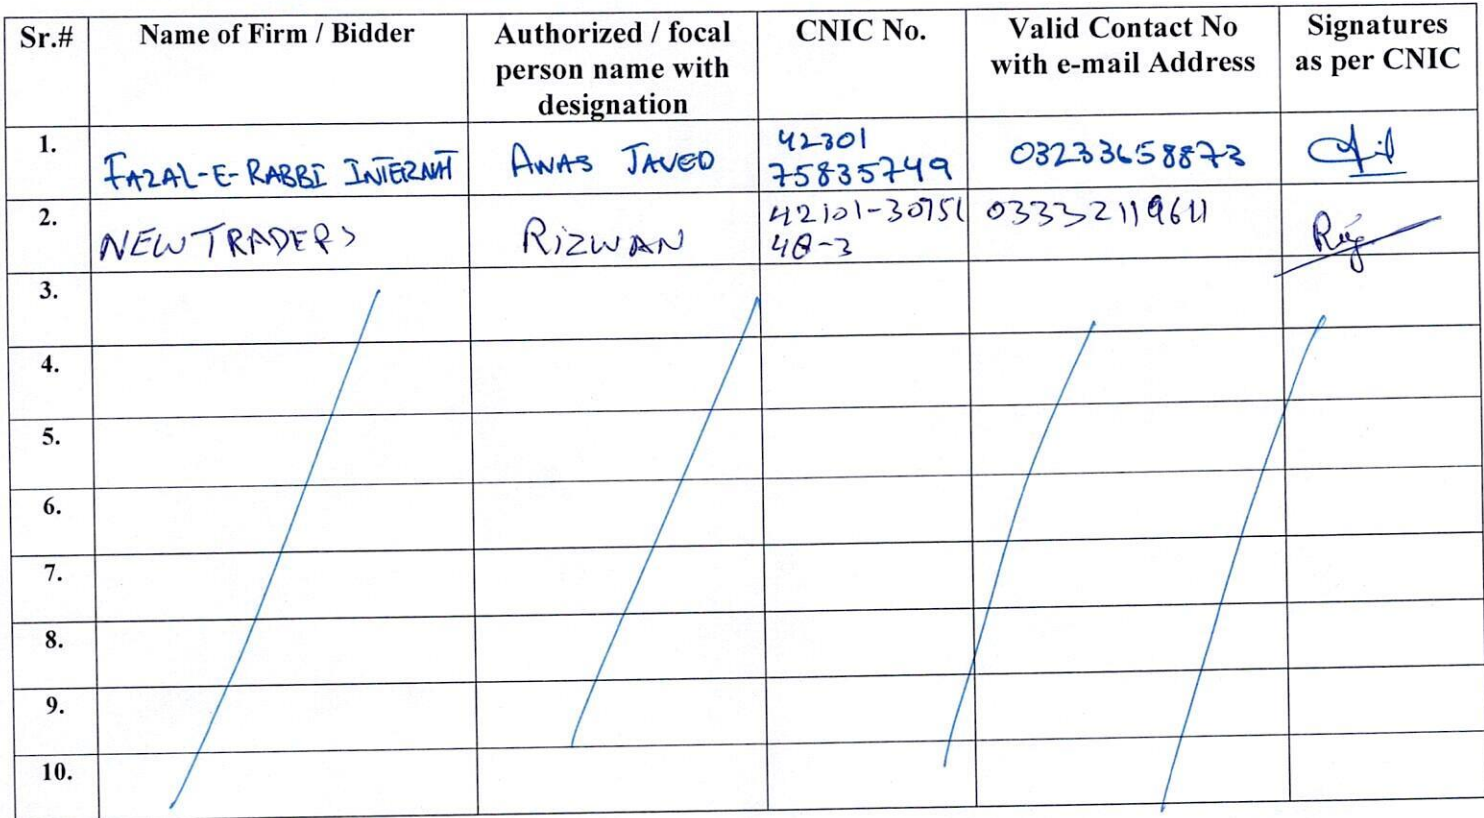 Sr.# Name of Firm / Bidder Authorized / focal person name with designation CNIC No. Valid Contact No with e-mail Address Signatures as per CNIC
1. FAZAL-E-RABBI INTERNAT ANAS JAVED 42301 75835749 03233658873
2. NEW TRADERS RIZWAN 03332119611
3.
4.
5.
6.
7.
8.
9.
10.